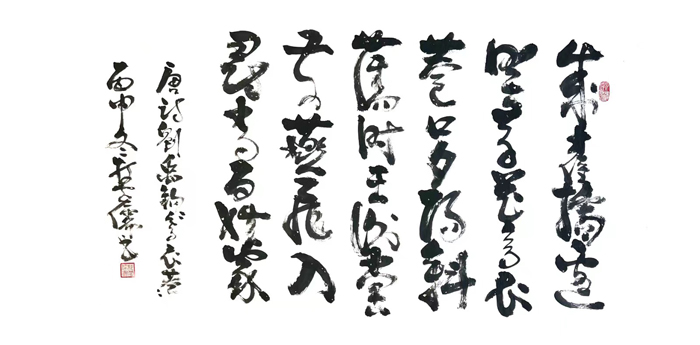 朱雀橋邊
野草花烏衣
巷口夕陽斜
舊時王謝堂
前燕飛入
尋常百姓家
唐詩劉禹錫烏衣巷
丙申冬